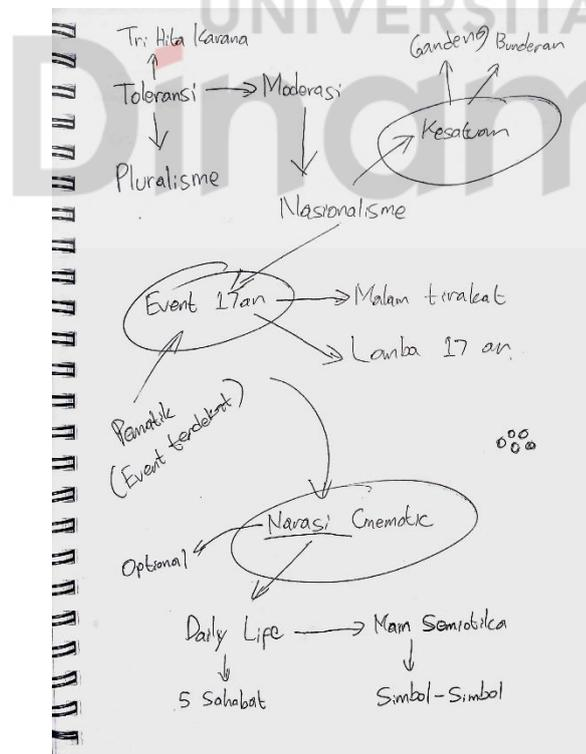 UNIVERSITA
Dinam
Tri Hita Karana
Gandeng
Bunderan
Toleransi
Moderasi
Kesatuan
Pluralisme
Nasionalisme
Event 17an
Malam tirakat
Lomba 17 an.
Pematik
(Event terdekat)
Narasi Cnematic
Optional
Daily Life
Main Semiotika
5 Sahabat
Simbol-Simbol